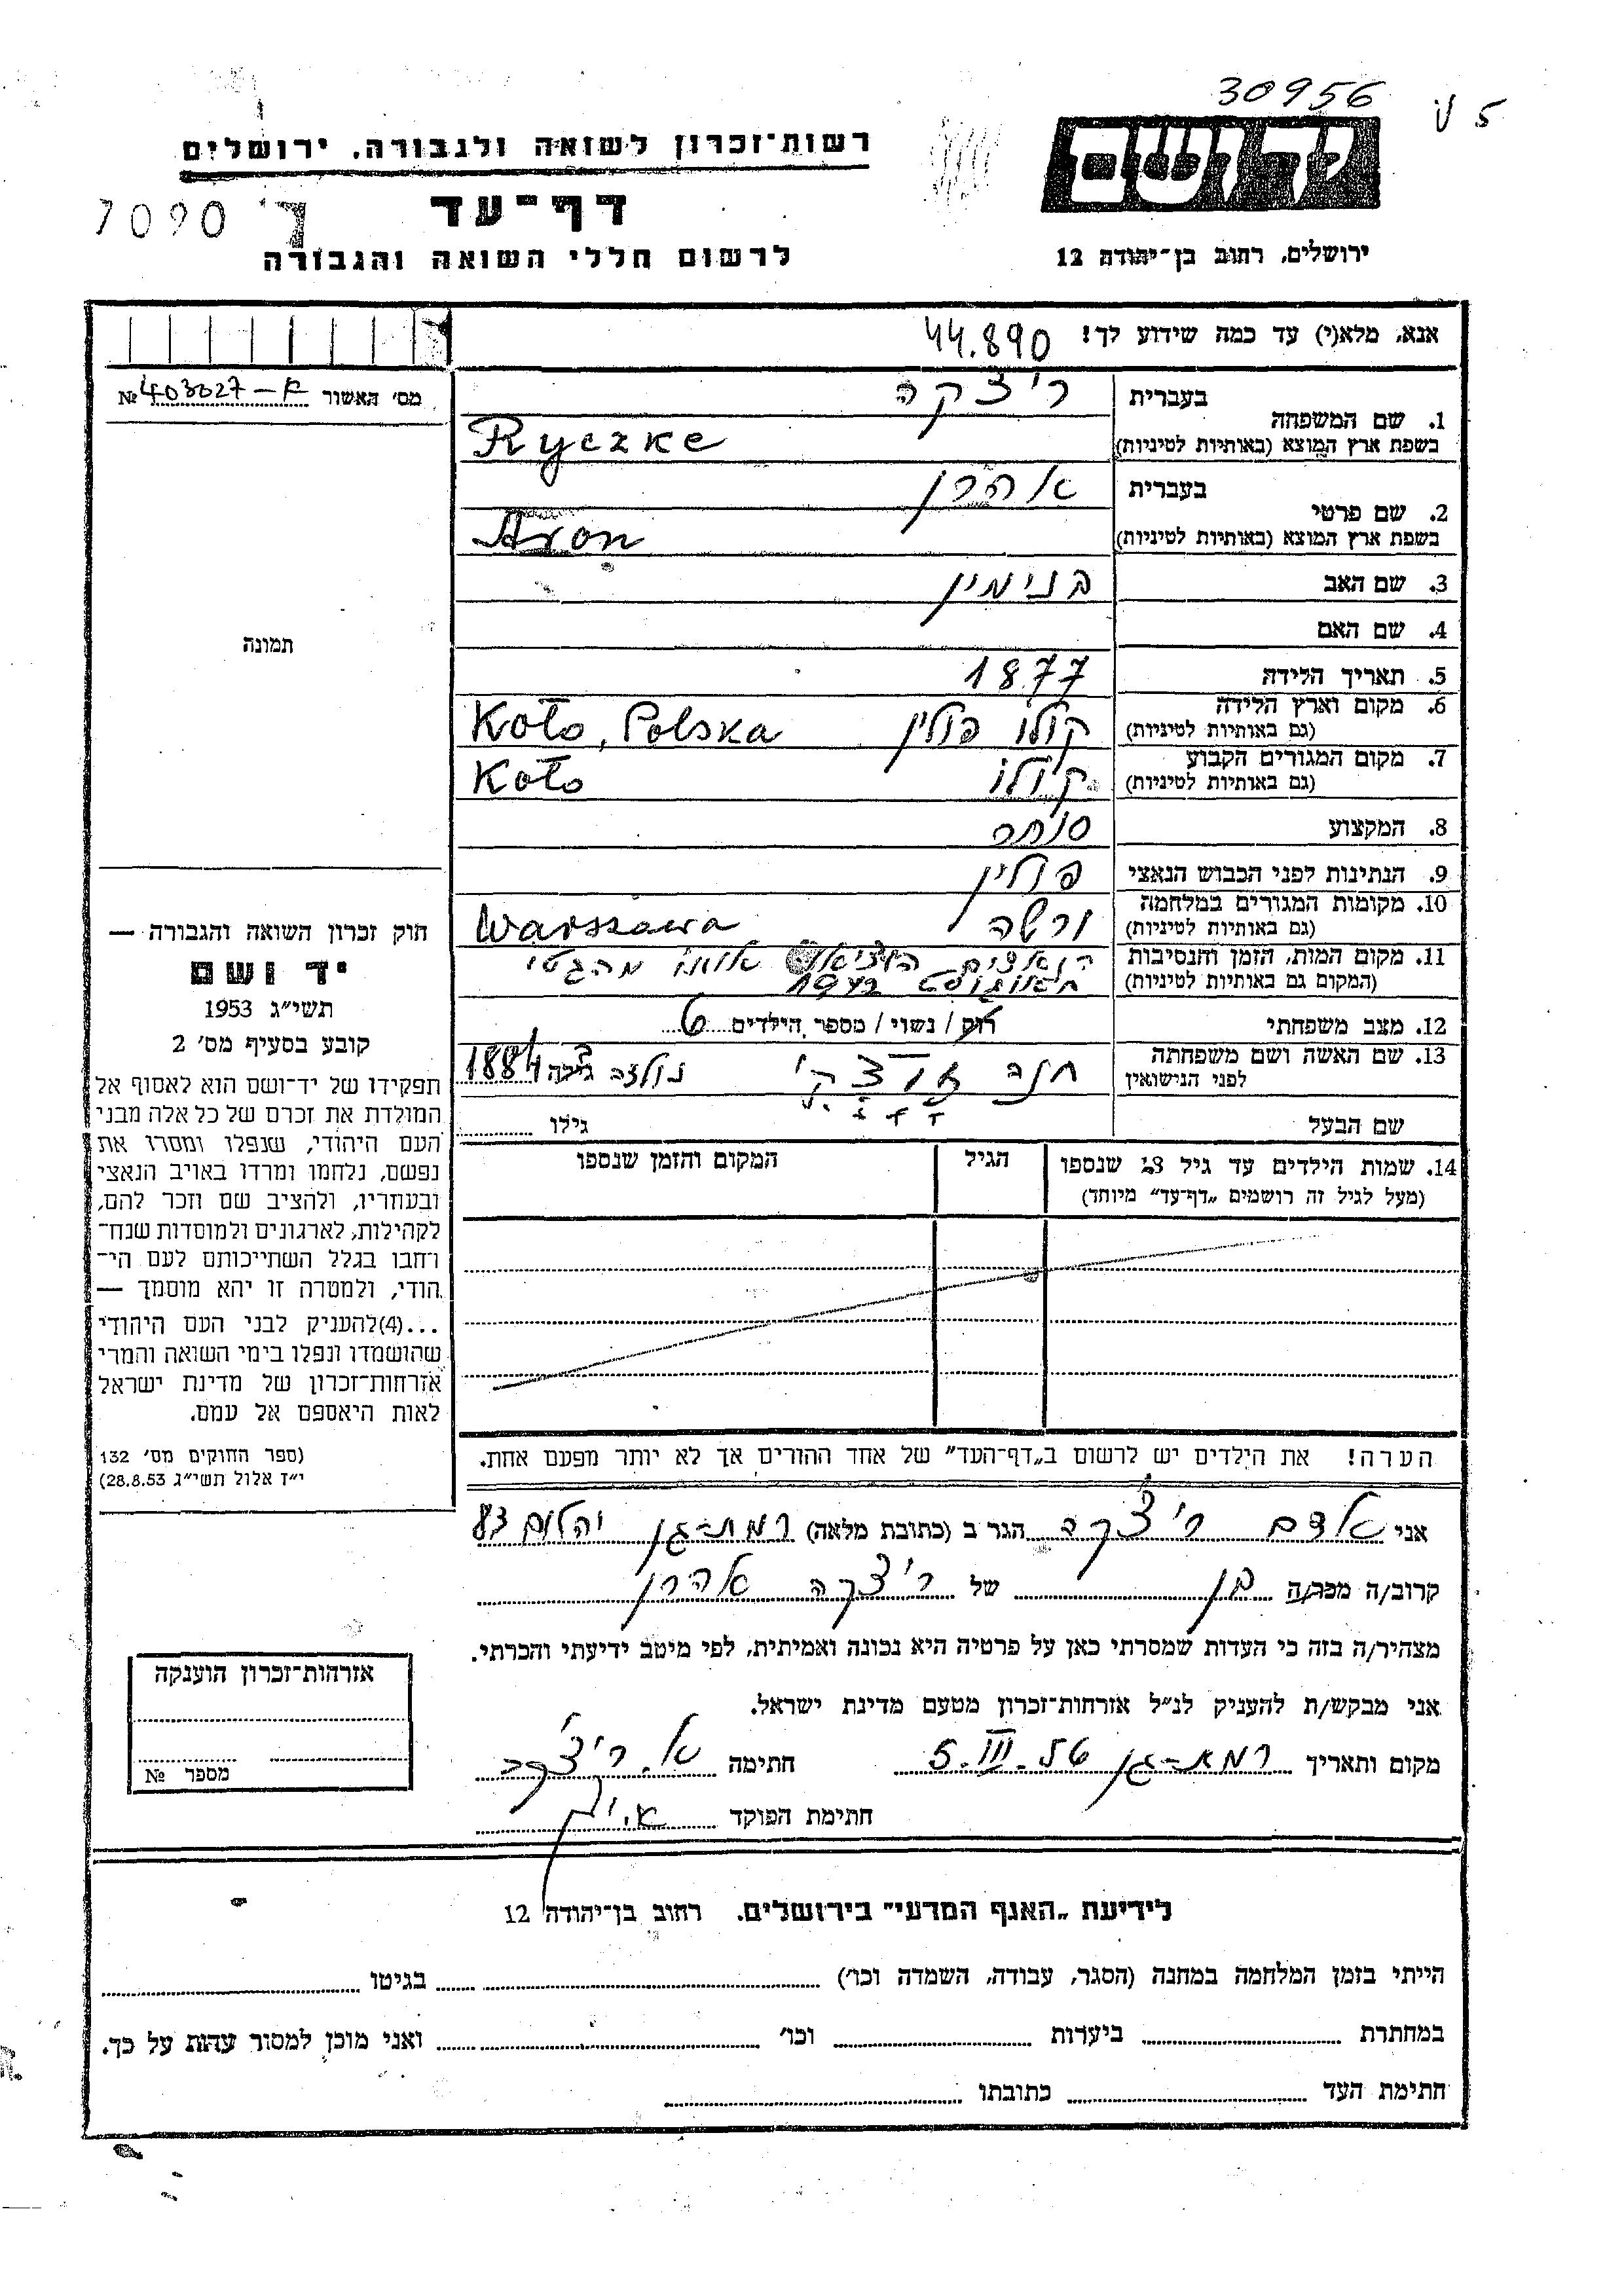 30956
5
רשות־זכרון לשואה ולגבורה, ירושלים
יד ושם
דף־עד
7090
לרשום חללי השואה והגבורה
ירושלים, רחוב בן־יהודה 12
אנא, מלא(י) עד כמה שידוע לך! 44.890
מס׳ האשור № 403027
1. שם המשפחה
בעברית ריצקה
בשפת ארץ המוצא (באותיות לטיניות) Ryczke
2. שם פרטי
בעברית אהרן
בשפת ארץ המוצא (באותיות לטיניות) Aron
3. שם האב בנימין
4. שם האם
5. תאריך הלידה 1877
6. מקום וארץ הלידה (גם באותיות לטיניות) קולו פולין Koło, Polska
7. מקום המגורים הקבוע (גם באותיות לטיניות) קולו Koło
8. המקצוע סוחר
9. הנתינות לפני הכבוש הנאצי פולין
10. מקומות המגורים במלחמה (גם באותיות לטיניות) ורשה Warszawa
11. מקום המות, הזמן והנסיבות (המקום גם באותיות לטיניות) הנאצים הוציאו אותו מהגטו
באוגוסט 1942
12. מצב משפחתי רוק / נשוי / מספר הילדים 6
13. שם האשה ושם משפחתה לפני הנישואין חנה נולדה גילה 1884
שם הבעל גילו
14. שמות הילדים עד גיל 18 שנספו (מעל לגיל זה רושמים „דף־עד” מיוחד)
הגיל
המקום והזמן שנספו
הערה! את הילדים יש לרשום ב„דף־העד” של אחד ההורים אך לא יותר מפעם אחת.
תמונה
חוק זכרון השואה והגבורה —
יד ושם
תשי״ג 1953
קובע בסעיף מס׳ 2
תפקידו של יד־ושם הוא לאסוף אל
המולדת את זכרם של כל אלה מבני
העם היהודי, שנפלו ומסרו את
נפשם, נלחמו ומרדו באויב הנאצי
ובעוזריו, ולהציב שם וזכר להם,
לקהילות, לארגונים ולמוסדות שנח־
רחבו בגלל השתייכותם לעם הי־
הודי, ולמטרה זו יהא מוסמך —
...(4)להעניק לבני העם היהודי
שהושמדו ונפלו בימי השואה והמרי
אזרחות־זכרון של מדינת ישראל
לאות היאספם אל עמם.
(ספר החוקים מס׳ 132
י״ז אלול תשי״ג 28.8.53)
אני אדם ריצ׳קה הגר ב (כתובת מלאה) רמת־גן יהלום 83
קרוב/ה מכר/ה בן של ריצ׳קה אהרן
מצהיר/ה בזה כי העדות שמסרתי כאן על פרטיה היא נכונה ואמיתית, לפי מיטב ידיעתי והכרתי.
אני מבקש/ת להעניק לנ״ל אזרחות־זכרון מטעם מדינת ישראל.
מקום ותאריך רמת־גן 5.III.56 חתימה א. ריצ׳קה
חתימת הפוקד
אזרחות־זכרון הוענקה
מספר №
לידיעת „האגף המדעי” בירושלים. רחוב בן־יהודה 12
הייתי בזמן המלחמה במחנה (הסגר, עבודה, השמדה וכו׳) בגיטו
במחתרת ביערות וכו׳ ואני מוכן למסור עדות על כך.
חתימת העד כתובתו